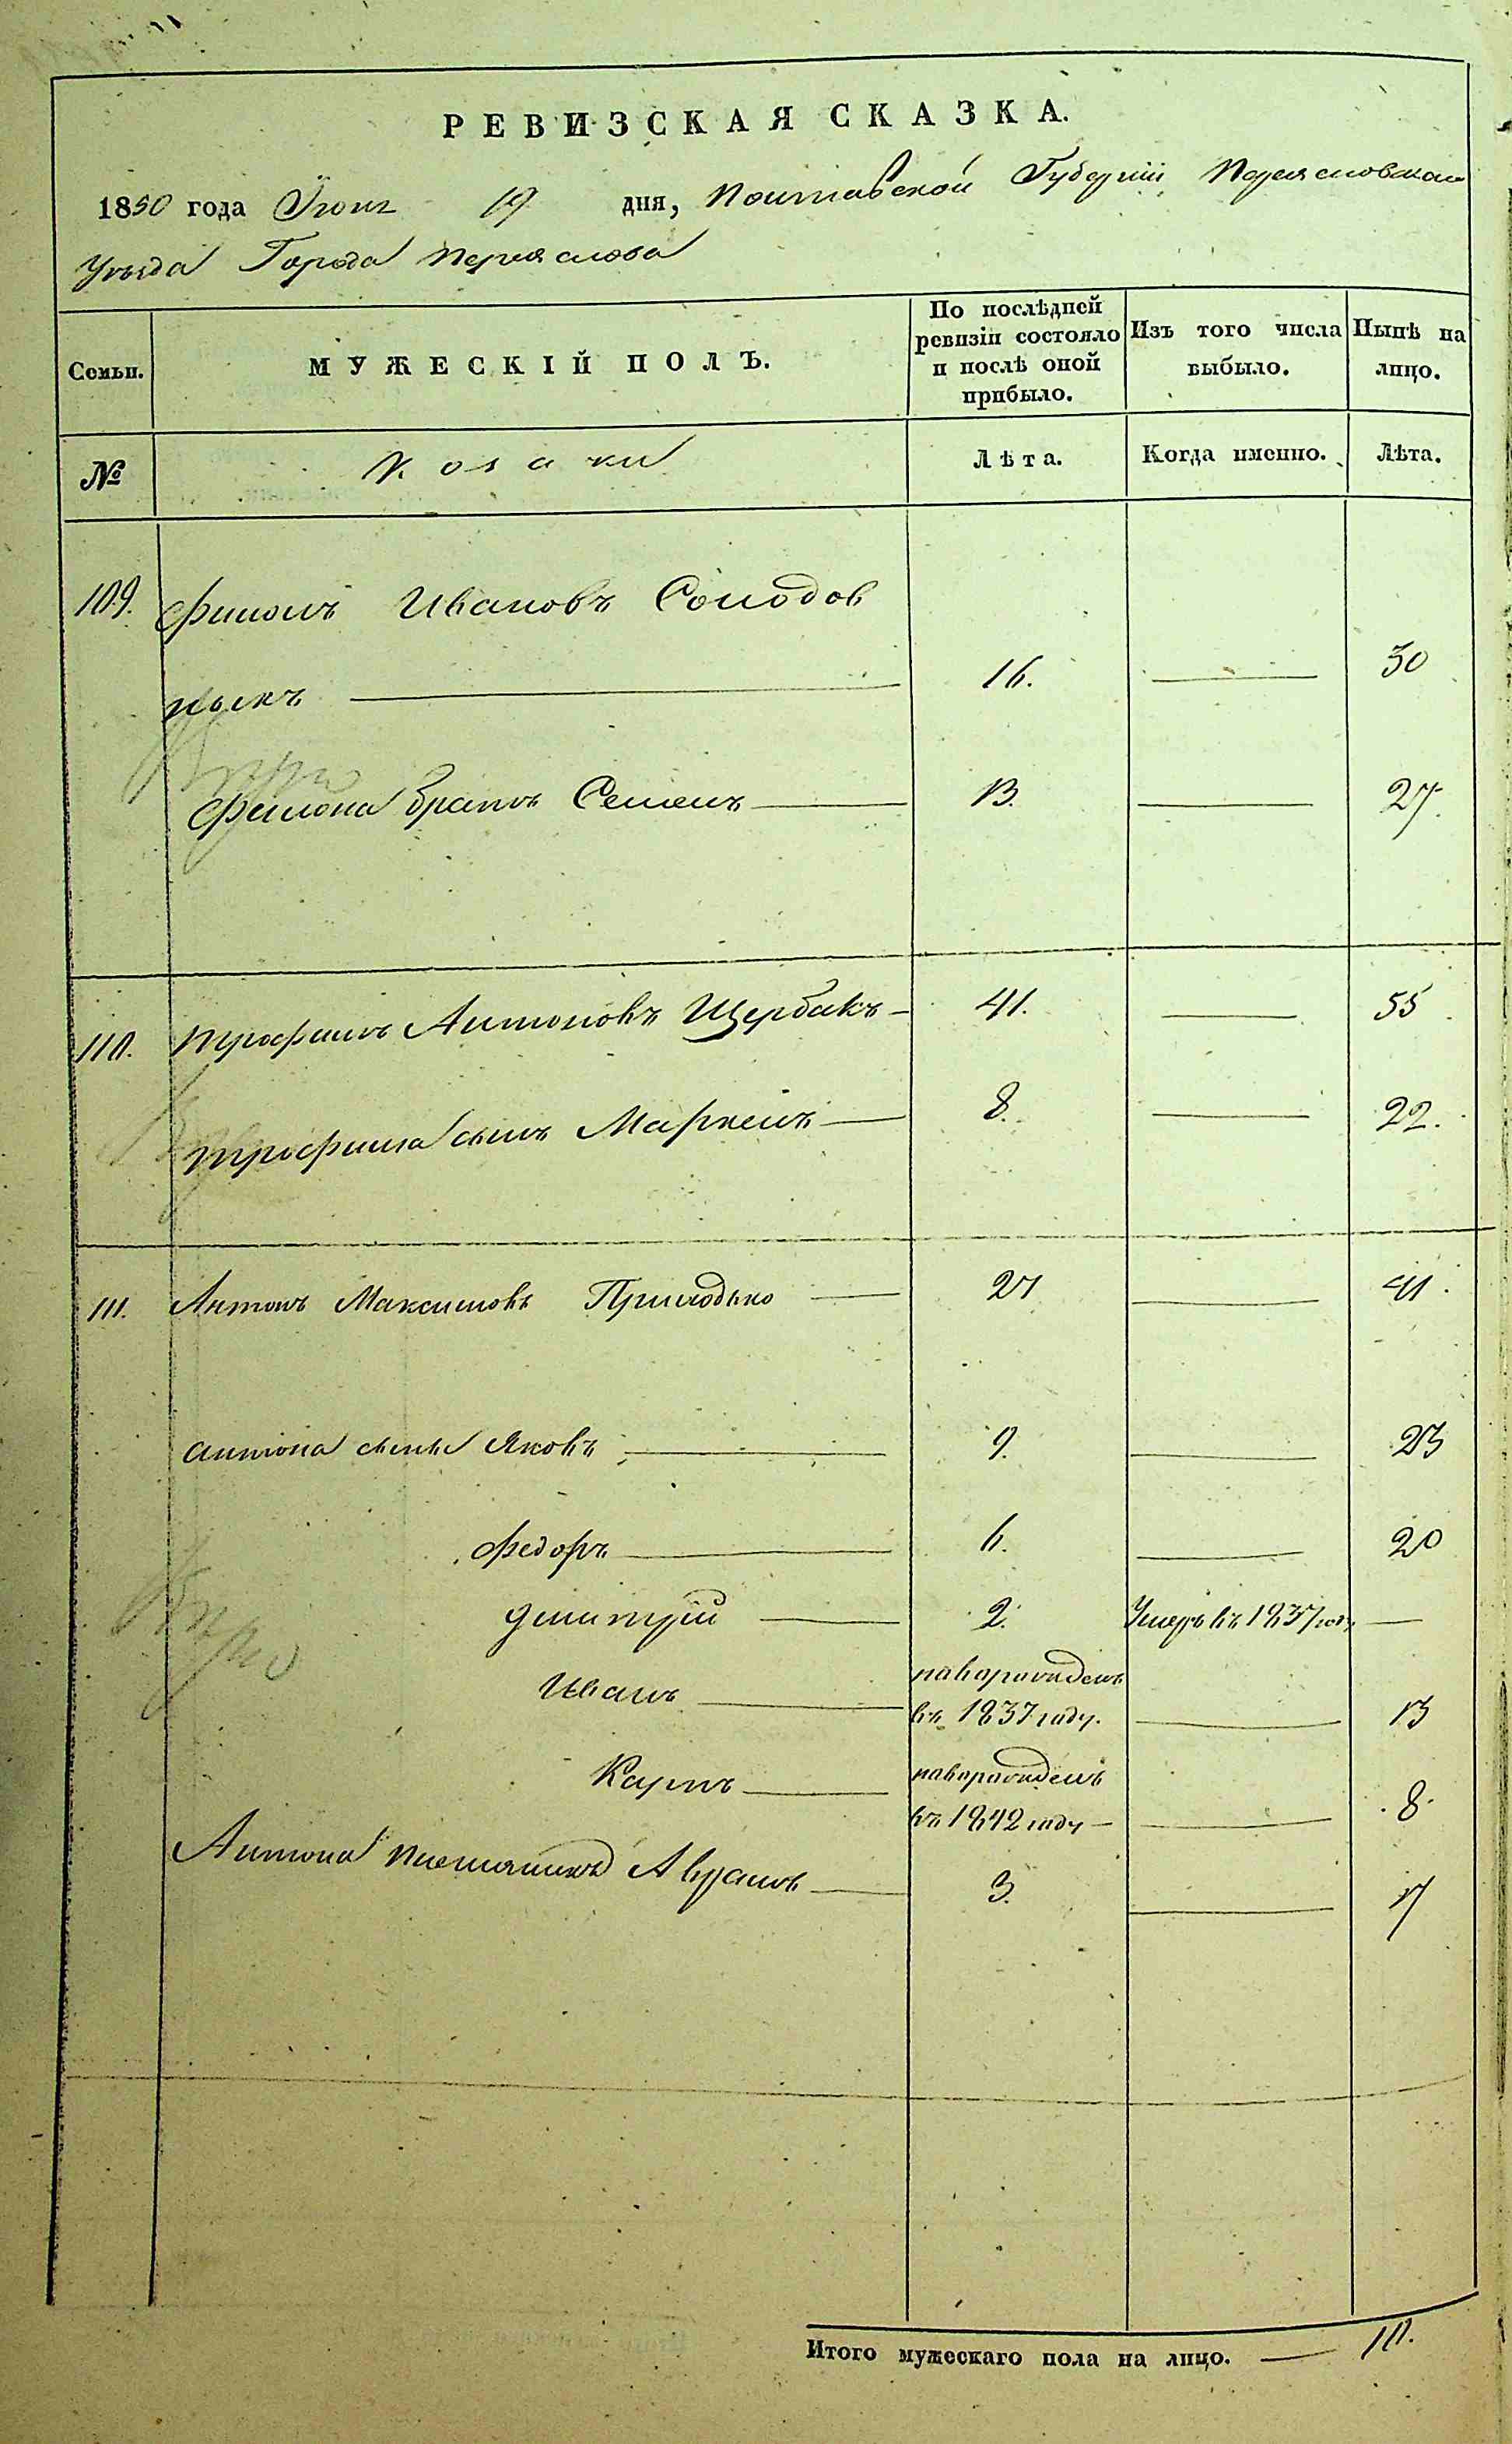 РЕВИЗСКАЯ СКАЗКА.
1850 года Іюня 19 дня, Полтавской Губерніи Переяславскаго
Уѣзда Города Переяслова
Семьи.
МУЖЕСКІЙ ПОЛЪ.
По послѣдней ревизіи состояло и послѣ оной прибыло.
Изъ того числа выбыло.
Нынѣ на лицо.
№ Козаки Лѣта. Когда именно. Лѣта.
109. Филонъ Ивановъ Солодов
никъ 16. 30
Филона братъ Семенъ 13. 27.
110. Трофимъ Антоновъ Щербакъ 41. 55
Трофима сынъ Маркелъ 8. 22.
111. Антонъ Максимовъ Приходько 27 41.
Антона сыны Яковъ 9. 23
Федоръ 6. 20
Дмитрій 2. Умеръ въ 1837 году
Иванъ новорожденъ
въ 1837 году. 13
Карпъ новорожденъ
въ 1842 году 8.
Антона племянникъ Аврамъ 3. 17
Итого мужескаго пола на лицо. 10.